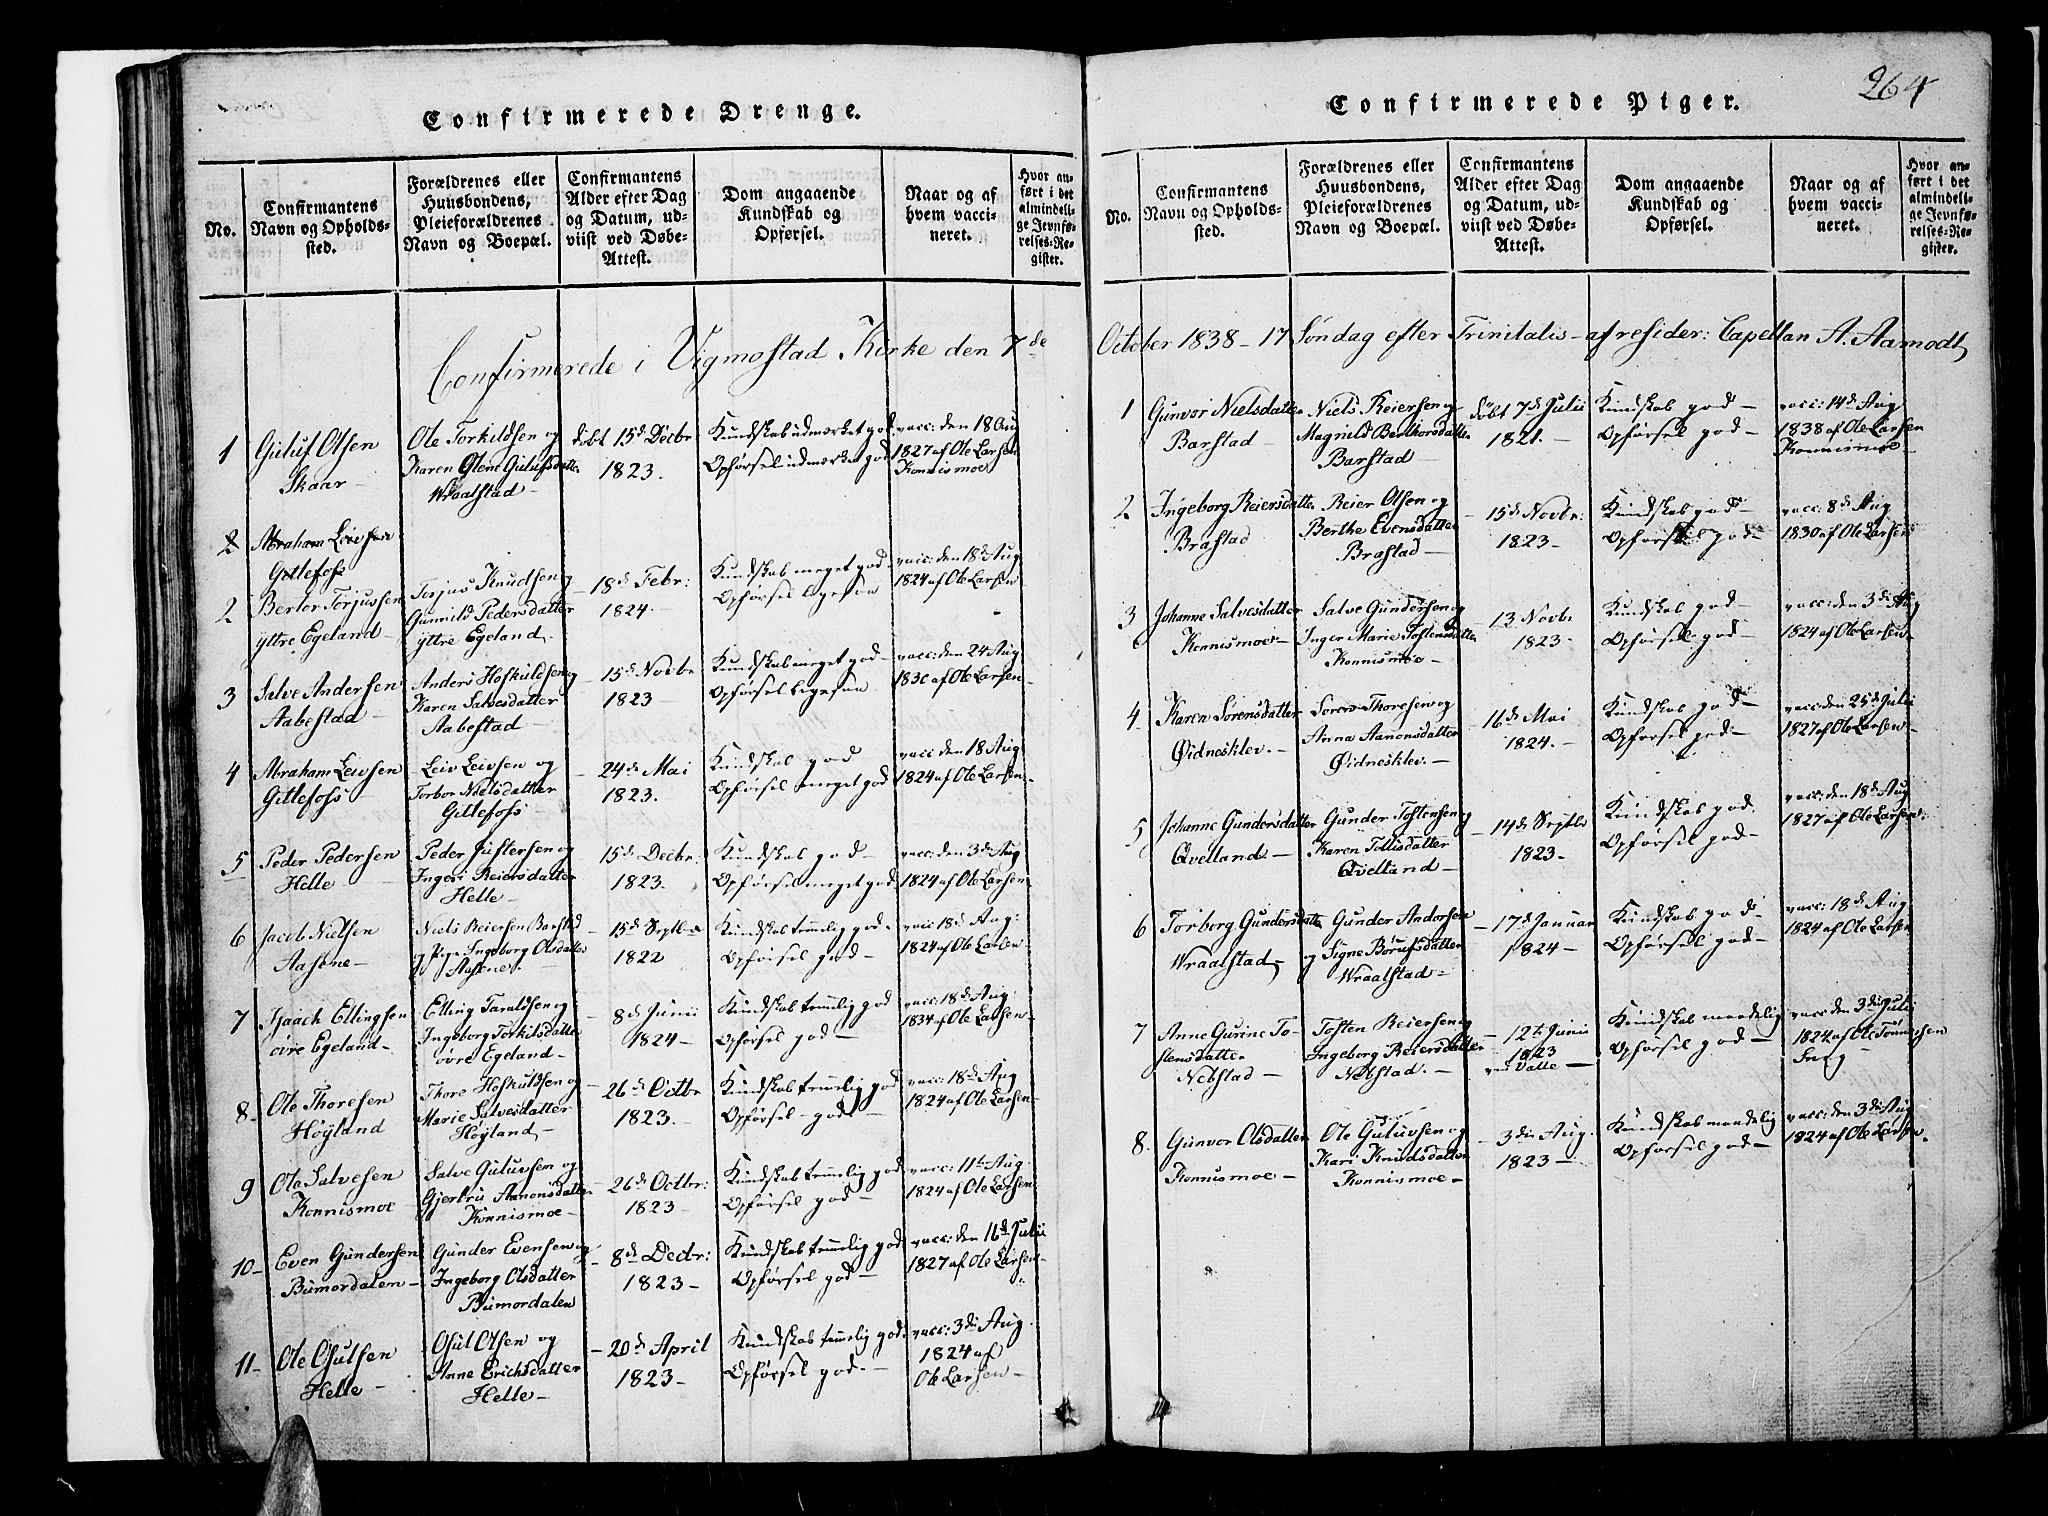 264
Confirmerede Drenge.
No.
Confirmantens
Navn og Opholds-
sted.
Forældrenes eller
Huusbondens,
Pleieforældrenes
Navn og Boepæl.
Confirmantens
Alder efter Dag
og Datum, ud-
viist ved Døbe-
Attest.
Dom angaaende
Kundskab og
Opførsel.
Naar og af
hvem vacci-
neret.
Hvor an-
ført i det
almindeli-
ge Jevnfø-
relses-Re-
gister.
Confirmerede i Vigmostad Kirke den 7de
1
Gutuf Olsen
Skaar
Ole Torkildsen og
Karen Olene Gulufsdatter
Wraalstad
døbt 15d Decbr
1823.
Kundskab udmærket god
Opførsel udmærket god
vacc: den 18 Aug
1827 af Ole Larsen
Konnismoe
2
Abraham Leivsen
Gitlefoss
2
Berlor Torjussen
yttre Egeland
Torjus Knudsen og
Gunnild Pedersdatter
yttre Egeland
18d Febr:
1824
Kundskab meget god
Opførsel ligesaa
vacc: den 18d Aug
1824 af Ole Larsen
3
Salve Andersen
Aabestad
Anders Hoskuldsen og
Karen Salvesdatter
Aabestad
15d Novbr
1823
Kundskab meget god
Opførsel ligesaa
vacc: den 24 Aug
1830 af Ole Larsen
4
Abraham Leivsen
Gitlefoss
Leiv Leivsen og
Torbor Nielsdatter
Gitlefoss
24d Mai
1823.
Kundskab god
Opførsel meget god
vacc den 18 Aug
1824 af Ole Larsen
5
Peder Pedersen
Helle
Peder Justersen og
Ingeri Reiersdatter
Helle
15d Decbr:
1823.
Kundskab god
Opførsel meget god
vacc: den 3d Aug
1824 af Ole Larsen
6
Jacob Nielsen
Aasene
Niels Reiersen Barstad
og Pige Ingeborg Olsdatter
Aasene.
15d Septbr
1822
Kundskab temmelig god
Opførsel god
vacc 18d Aug:
1824 af Ole Larsen
7
Isaach Ellingsen
øvre Egeland
Elling Taraldsen og
Ingeborg Torkilsdatter
øvre Egeland
8d Junii
1824
Kundskab temmelig god
Opførsel god
vacc: 18d Aug:
1834 af Ole Larsen
8
Ole Thoresen
Høyland
Thore Hoskuldsen og
Marie Salvesdatter
Høyland
26d Octbr
1823.
Kundskab temmelig god
Opførsel god
vacc: 18d Aug
1824 af Ole Larsen
9
Ole Salvesen
Konnismoe
Salve Guluvsen og
Gjertru Aanonsdatter
Konnismoe
26d Octbr:
1823
Kundskab temmelig god
Opførsel god
vacc: 11te Aug
1824 af Ole Larsen
10
Even Gundersen
Bumordalen
Gunder Evensen og
Ingeborg Olsdatter
Bumordalen
8de Decbr:
1823
Kundskab temmelig god
Opførsel god
vacc: den 16d Julii
1827 af Ole Larsen
11
Ole Osulsen
Helle
Osul Olsen og
Anne Erichsdatter
Helle
20d April
1823
Kundskab temmelig god
Opførsel god.
vacc: 3die Aug
1824 af
Ole Larsen
Confirmerede Piger.
No.
Confirmantens
Navn og Opholds-
sted.
Forældrenes eller
Huusbondens,
Pleieforældrenes
Navn og Boepæl.
Confirmantens
Alder efter Dag
og Datum, ud-
viist ved Døbe-
Attest.
Dom angaaende
Kundskab og
Opførsel.
Naar og af
hvem vacci-
neret.
Hvor an-
ført i det
almindeli-
ge Jevnfø-
relses-Re-
gister.
October 1838 - 17 Søndag efter Trinitatis - af resider: Capellan A. Aamodt
1
Gunvor Nielsdatter
Barstad
Niels Reiersen og
Magnild Berthorsdatter
Barstad
døbt 7d Julii
1821.
Kundskab god
Opførsel god
vacc: 14d Aug
1838 af Ole Larsen
Konnismoe
2
Ingeborg Reiersdatter
Brastad
Reier Olsen og
Berthe Evensdatter
Brastad
15d Novbr:
1823
Kundskab god
Opførsel god
vacc: 8d Aug
1830 af Ole Larsen
3
Johanne Salvesdatter
Konnismoe
Salve Gundersen og
Inger Marie Tostensdatter
Konnismoe
13 Novbr
1823
Kundskab god
Opførsel god
vacc: den 3die Aug
1824 af Ole Larsen
4
Karen Sørensdatter
Øidnesklev.
Søren Thoresen og
Anna Aanonsdatter
Øidnesklev.
16d Mai
1824.
Kundskab god
Opførsel god
vacc: den 25d Julii
1827 af Ole Larsen
5
Johanne Gundersdatter
Qvelland.
Gunder Tostensen og
Karen Tollisdatter
Qvelland
14d Septbr
1823.
Kundskab god
Opførsel god
vacc: den 18d Aug
1827 af Ole Larsen
6
Torborg Gundersdatter
Wraalstad
Gunder Andersen
og Signe Børufsdatter
Wraalstad
17d Januar
1824
Kundskab god
Opførsel god
vacc: 18d Aug
1824 af Ole Larsen
7
Anne Gurine To-
stensdatter
Nebstad
Tosten Reiersen og
Ingeborg Reiersdatter
Nebstad.
12te Junii
1823
Kundskab maadelig
Opførsel god
vacc: den 3die Julii
1824 af Ole Tønnesen
8.
Gunvor Olsdatter
Konnismoe
Ole Guluvsen og
Kari Knudsdatter
Konnismoe
3die Aug.
1823
Kundskab maadelig
Opførsel god
vacc: den 3die Aug
1824 af Ole Larsen